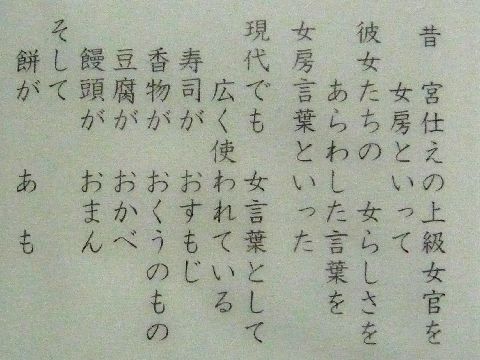 昔 宮仕えの上級女官を
女房といって
彼女たちの 女らしさを
あらわした言葉を
女房言葉といった
現代でも 女言葉として
広く使われている
寿司が おすもじ
香物が おくうのもの
豆腐が おかべ
饅頭が おまん
そして
餅が あも